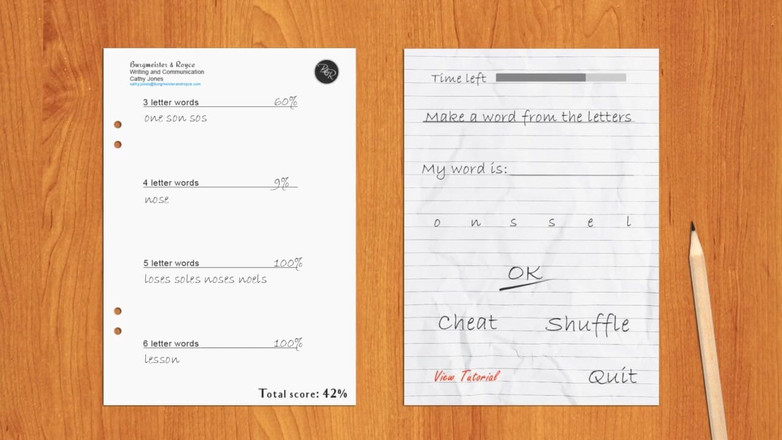 Burgmeister & Royce
Writing and Communication
Cathy Jones
cathy.jones@burgmeisterandroyce.com
B&R
3 letter words 60%
one son sos
4 letter words 9%
nose
5 letter words 100%
loses soles noses noels
6 letter words 100%
lesson
Total score: 42%
Time left
Make a word from the letters
My word is:
o n s s e l
OK
Cheat Shuffle
View Tutorial Quit